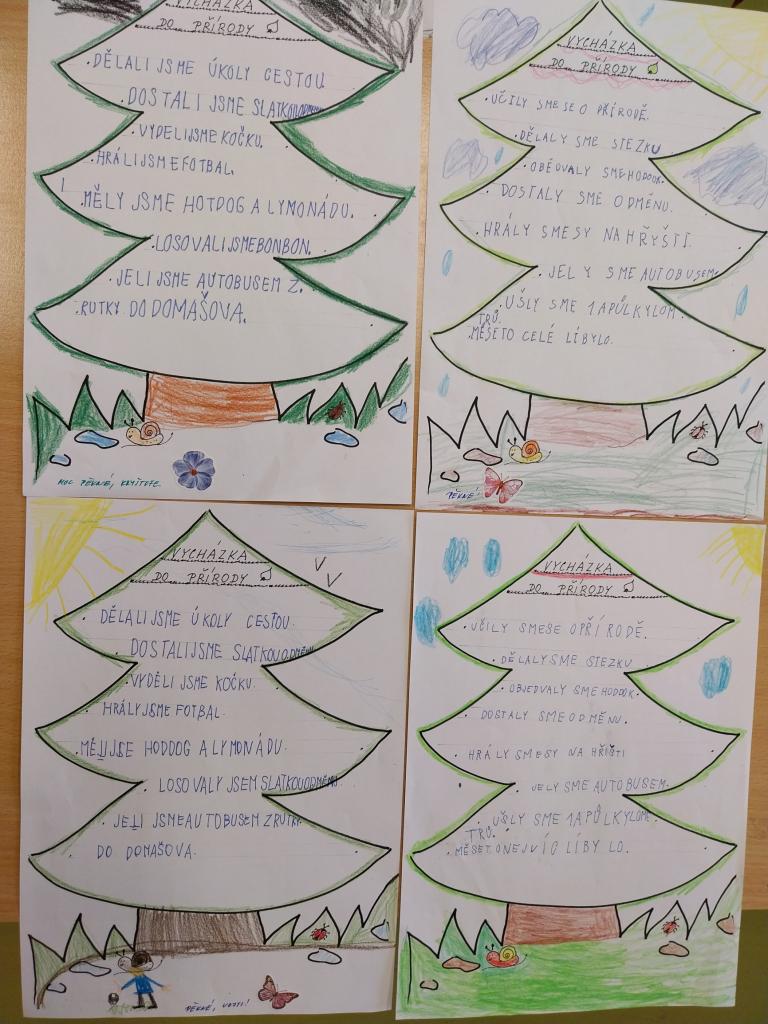 VYCHÁZKA
DO PŘÍRODY
DĚLALI JSME ÚKOLY CESTOU
DOSTALI JSME SLATKOUODMĚNU
VYDELIJSME KOČKU.
HRÁLIJSMEFOTBAL.
MĚLY JSME HOTDOG A LYMONÁDU.
LOSOVALIJSMEBONBON.
JELIJSME AUTOBUSEM Z.
RUTKY DO DOMAŠOVA.
MOC PĚKNÉ, KRYŠTOFE.
VYCHÁZKA
DO PŘÍRODY
UČILY SMESE O PŘÍRODĚ.
DĚLALY SME STEZKU
OBĚDVALY SMEHODOK.
DOSTALY SME ODMĚNU.
HRÁLY SMESY NAHŘYŠTÍ.
JELY SMEAUTOBUSEM.
UŠLY SME 1APŮLKYLOM
TRŮ.
MĚSETO CELÉ LÍBYLO.
PĚKNÉ!
VYCHÁZKA
DO PŘÍRODY
DĚLALIJSME ÚKOLY CESTOU
DOSTALIJSME SLATKOUODMĚNU
VYDĚLI JSME KOČKU.
HRÁLYJSME FOTBAL
MĚLIJSE HODDOG A LYMONÁDU.
LOSOVALY JSEM SLATKOUODMĚNU
JELI JSMEAUTOBUSEM ZRUTKY
DO DOMAŠOVA.
VYCHÁZKA
DO PŘÍRODY
UČILY SMESE OPŘÍRODĚ.
DĚLALYSME STEZKU
OBJEDVALY SMEHODDOK.
DOSTALY SMEODMĚNU.
HRÁLY SMESY NA HŘIŠTI
JELYSME AUTOBUSEM.
UŠLY SME 1APŮLKYLOME
TRŮ.
MĚSETONEJVÍC LÍBYLO.